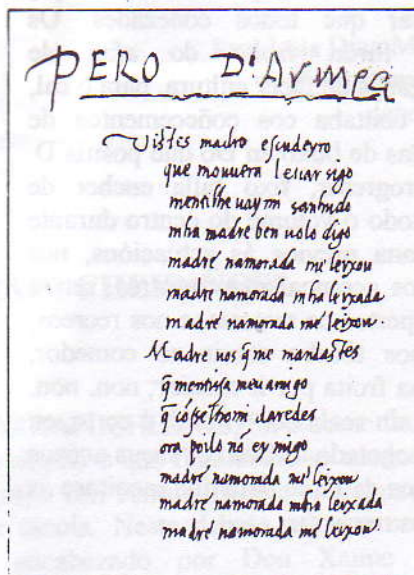 PERO D'ARMEA
Vistes madre escudeyro
que mouuera leuar sigo
mentilhe uaymi sanhudo
mha madre ben uolo digo
madre namorada me leixou
madre namorada mha leixada
madre namorada me leixou
Madre uos q̄ me mandastes
q̄ mentiss meu amigo
q̄ cōsel nom daredes
ora poilo nō ey migo
madre namorada me leixou
madre namorada mha leixada
madre namorada me leixou